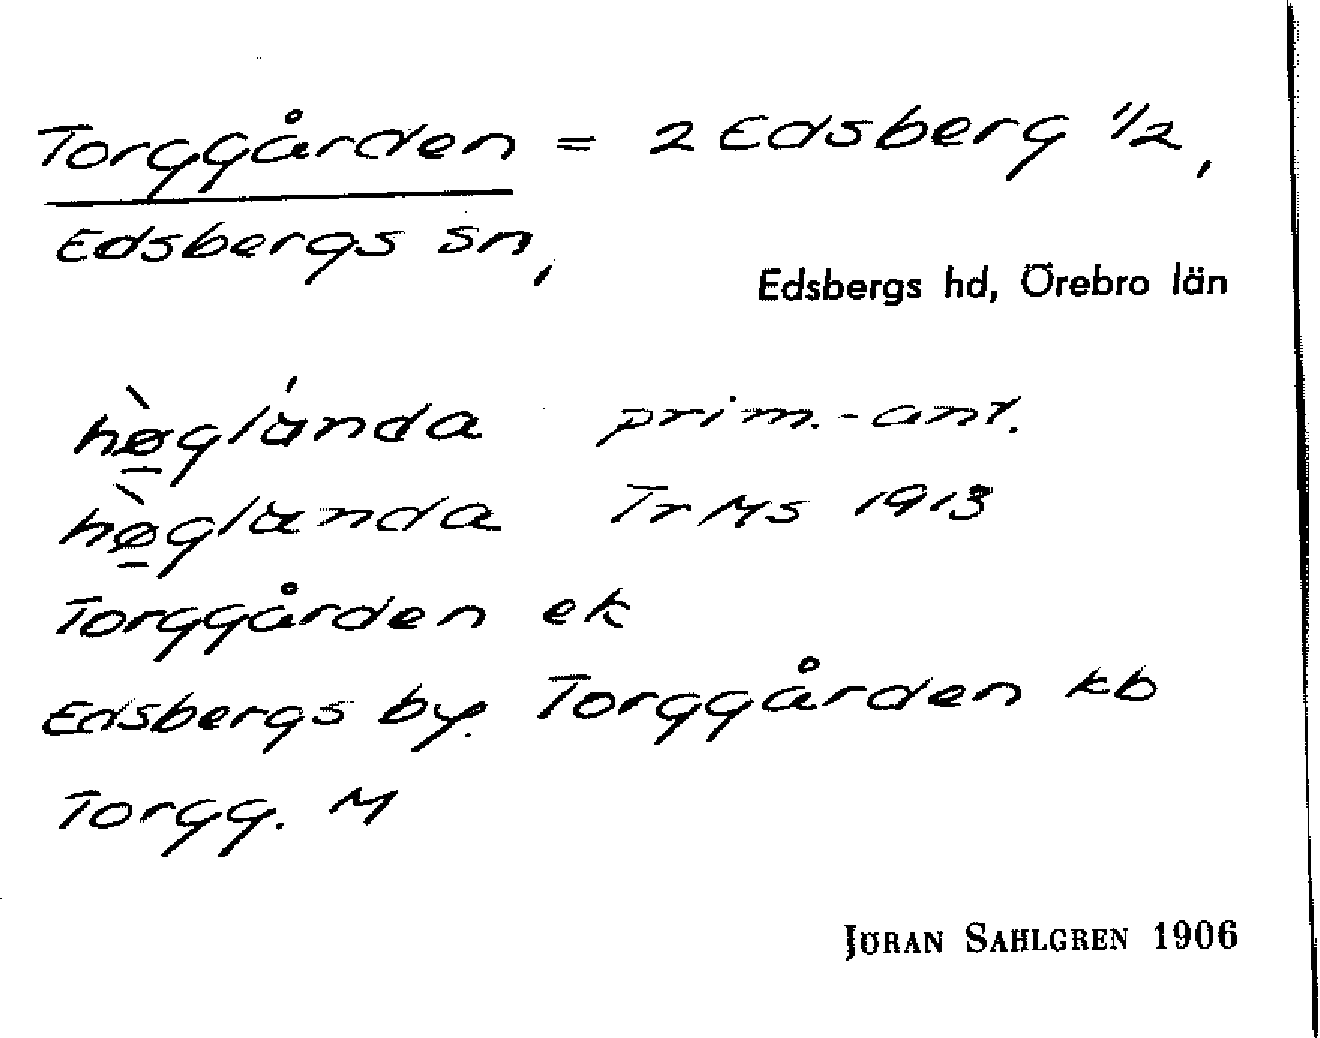 Torggården = 2 Edsberg 1/2,
Edsbergs sn,
Edsbergs hd, Örebro län
hø̲̀glánda prim.-ant.
hø̲̀glanda Tr Ms 1913
Torggården ek
Edsbergs by. Torggården kb
Torgg. M
JÖRAN SAHLGREN 1906